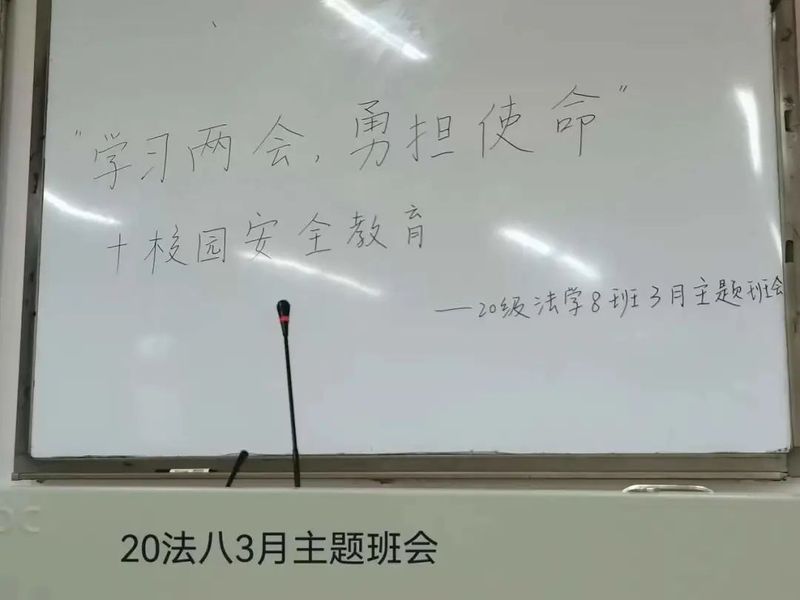 "学习两会，勇担使命"
+校园安全教育
—20级法学8班3月主题班会
20法八3月主题班会